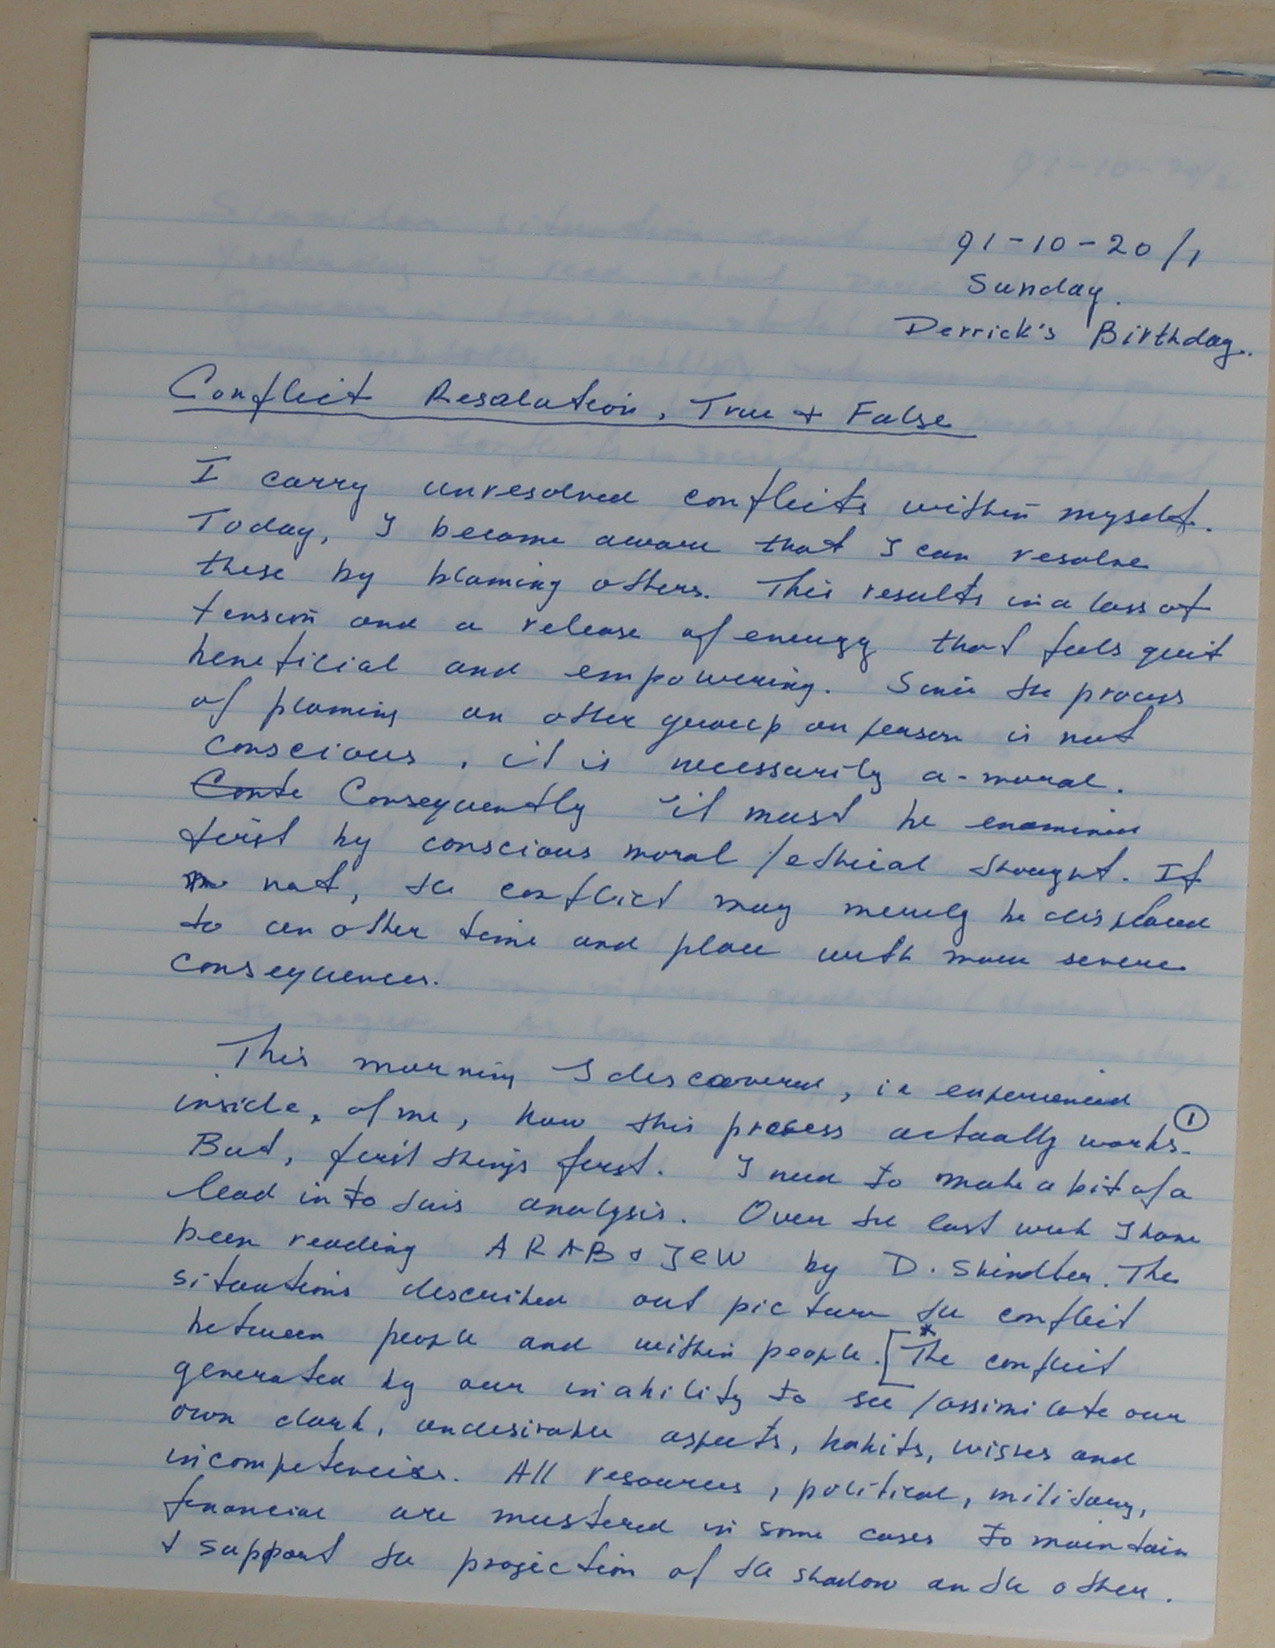 91-10-20/1
Sunday.
Derrick's Birthday.
Conflict Resolution, True + False
I carry unresolved conflicts within myself.
Today, I become aware that I can resolve
these by blaming others. This results in a loss of
tension and a release of energy that feels quit
beneficial and empowering. Since the process
of placing an other group or person is not
conscious, it is necessarily a-moral.
Conte Consequently it must be examined
first by conscious moral/ethical thought. If
not, the conflict may merely be displaced
to an other time and place with more severe
consequences.
This morning I discovered, ie experienced
inside, of me, how this process actually works. ①
But, first things first. I need to make a bit of a
lead in to this analysis. Over the last week I have
been reading ARAB & JEW by D. Shindler. The
situations described out picture the conflict
between people and within people. [* The conflict
generated by our inability to see/assimilate our
own dark, undesirable aspects, habits, wishes and
incompetencies. All resources, political, military,
financial are mustered in some cases to maintain
+ support the projection of the shadow on the other.